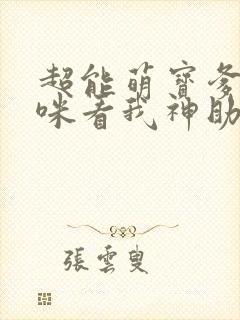 超能萌寶爹
咪看我神助
張雲叟